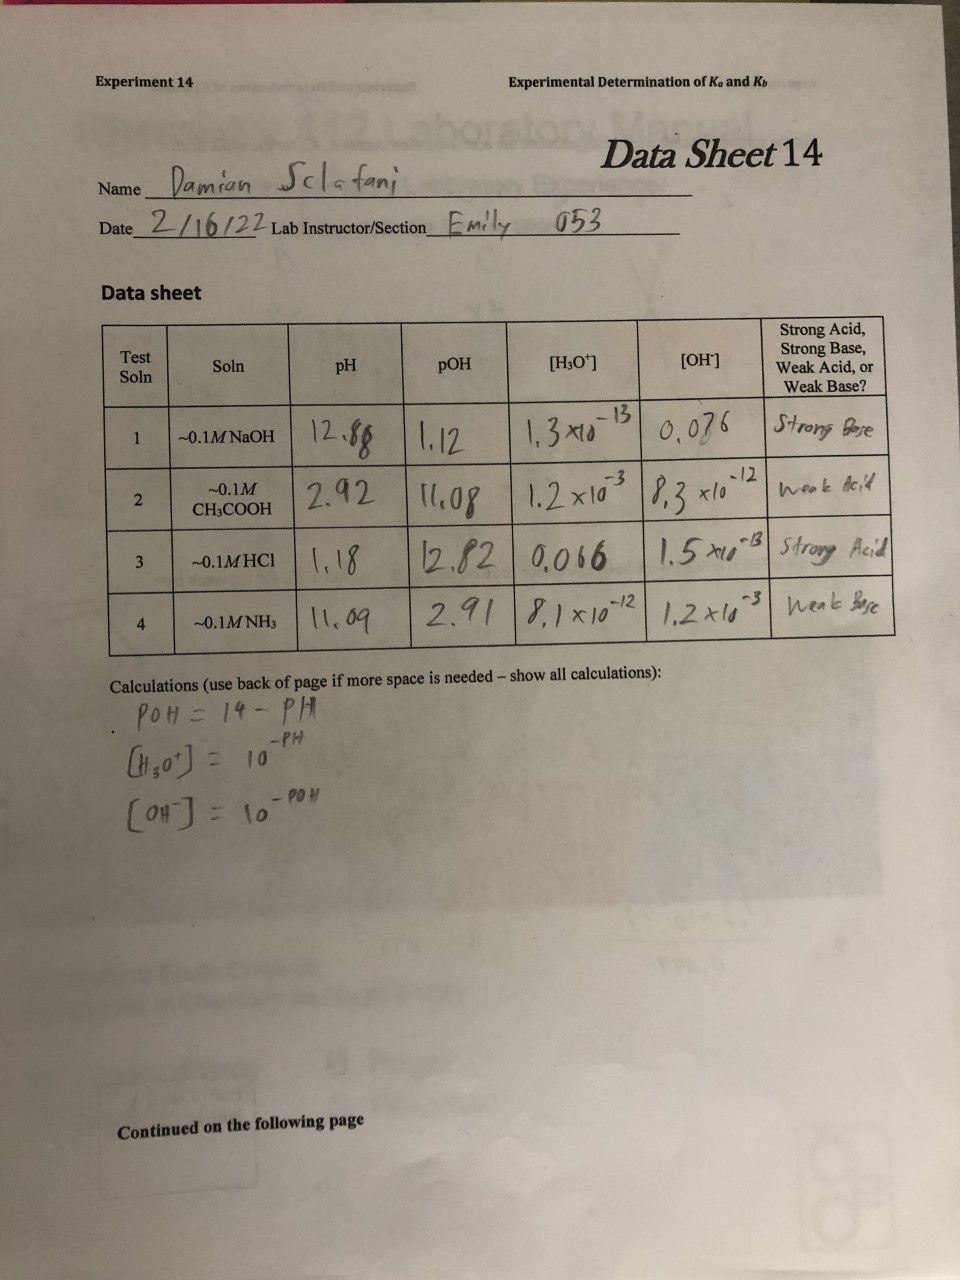 Experiment 14
Experimental Determination of Ka and Kb
Data Sheet 14
Name Damian Sclafani
Date 2/16/22 Lab Instructor/Section Emily 053
Data sheet
Test Soln | Soln | pH | pOH | [H₃O⁺] | [OH⁻] | Strong Acid, Strong Base, Weak Acid, or Weak Base?
1 | ~0.1M NaOH | 12.88 | 1.12 | 1.3 x10⁻¹³ | 0.076 | Strong Base
2 | ~0.1M CH₃COOH | 2.92 | 11.08 | 1.2 x10⁻³ | 8.3 x10⁻¹² | Weak Acid
3 | ~0.1M HCl | 1.18 | 12.82 | 0.066 | 1.5 x10⁻¹³ | Strong Acid
4 | ~0.1M NH₃ | 11.09 | 2.91 | 8.1 x10⁻¹² | 1.2 x10⁻³ | Weak Base
Calculations (use back of page if more space is needed – show all calculations):
POH = 14 - PH
[H₃O⁺] = 10^-PH
[OH⁻] = 10^-POH
Continued on the following page